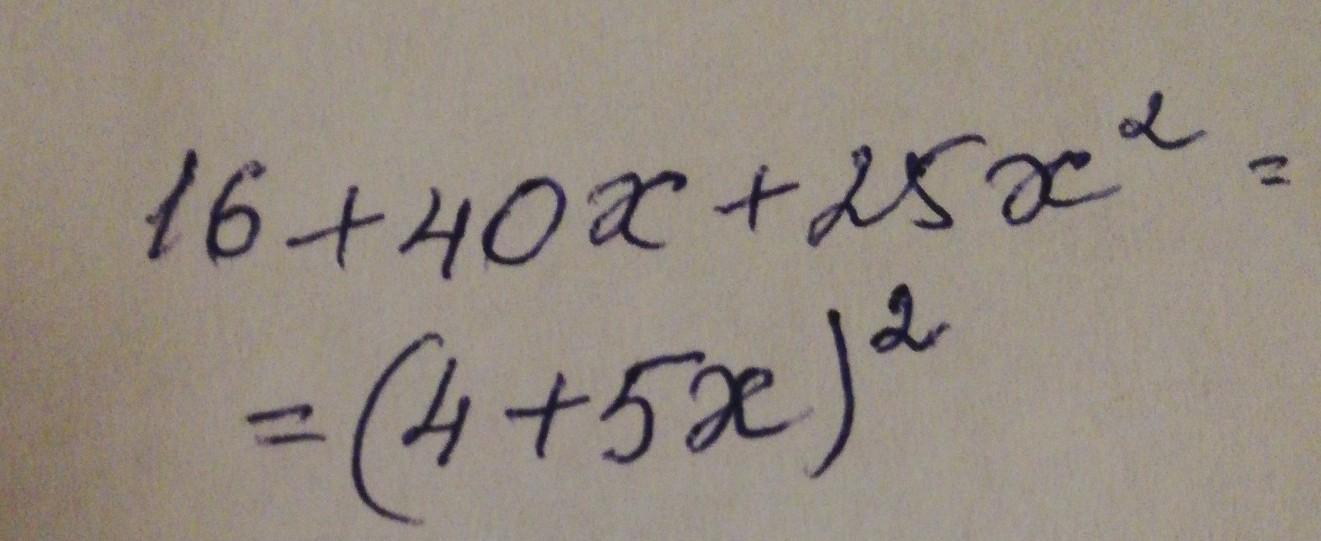 16+40x+25x² =
=(4+5x)²